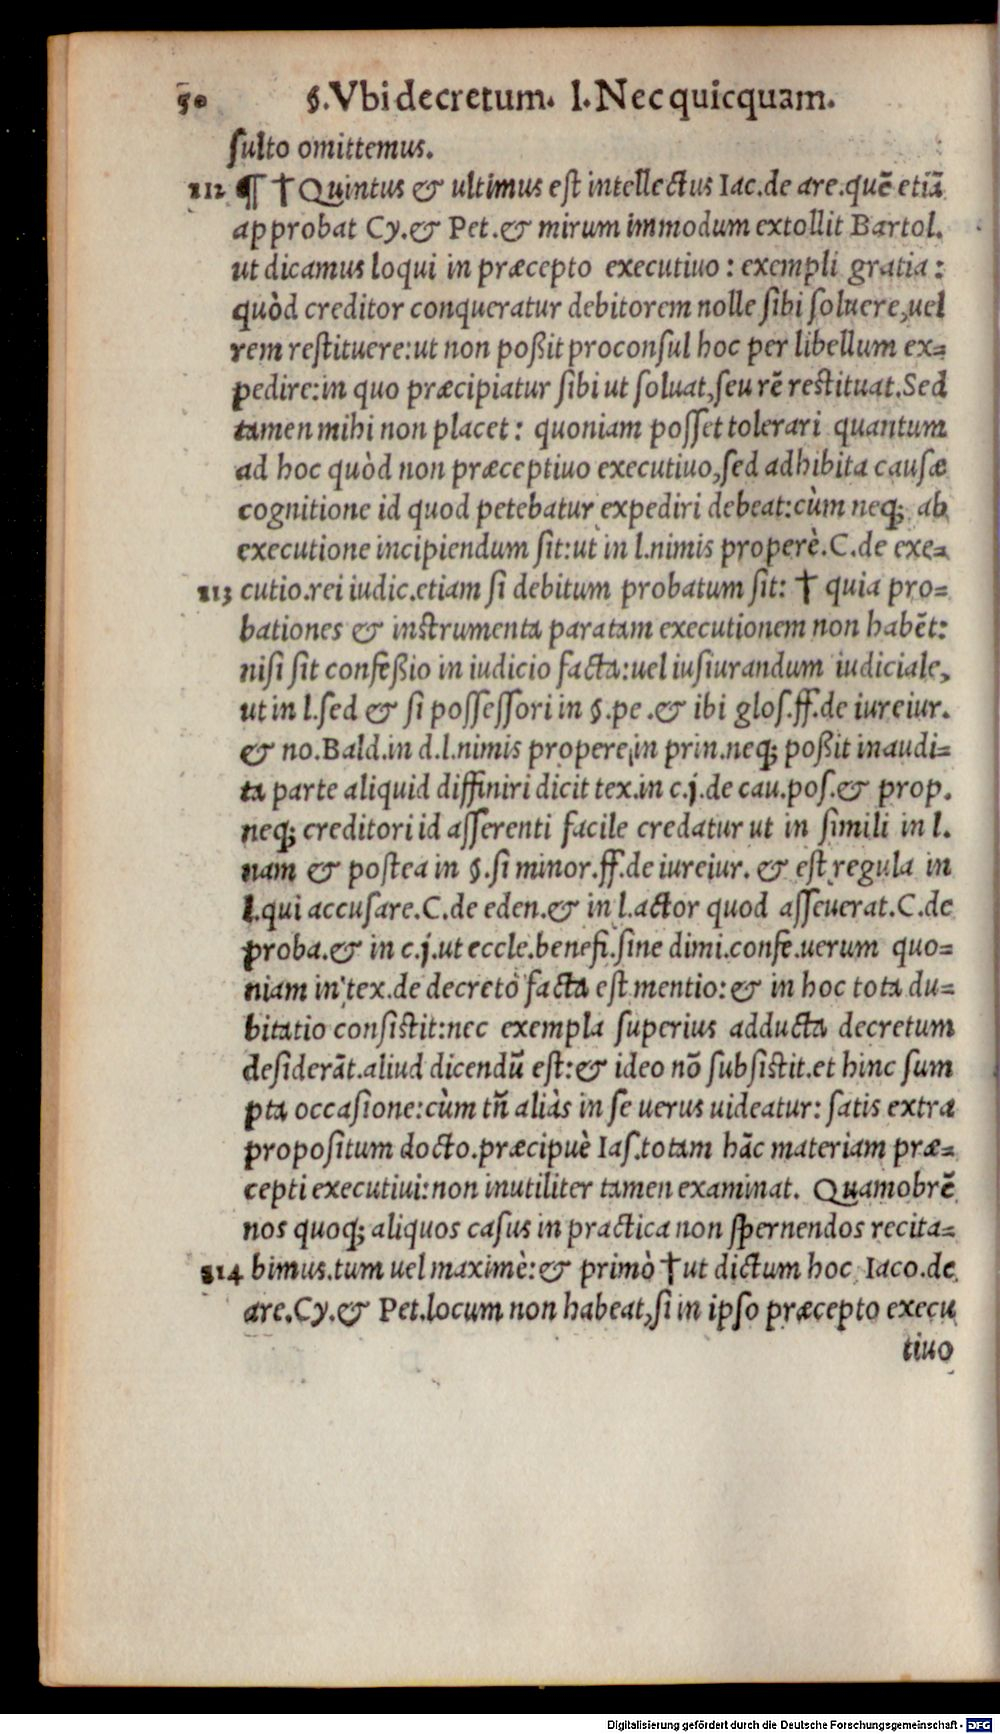 50 §.Vbi decretum. l.Nec quicquam.
sulto omittemus.
112 ¶ † Quintus & ultimus est intellectus Iac.de are.quẽ etiã
approbat Cy.& Pet.& mirum immodum extollit Bartol.
ut dicamus loqui in præcepto executiuo: exempli gratia:
quòd creditor conqueratur debitorem nolle sibi soluere,uel
rem restituere:ut non poßit proconsul hoc per libellum ex=
pedire:in quo præcipiatur sibi ut soluat,seu rẽ restituat.Sed
tamen mihi non placet: quoniam posset tolerari quantum
ad hoc quòd non præceptiuo executiuo,sed adhibita causæ
cognitione id quod petebatur expediri debeat:cùm neq; ab
executione incipiendum sit:ut in l.nimis properè.C.de exe=
113 cutio.rei iudic.etiam si debitum probatum sit: † quia pro=
bationes & instrumenta paratam executionem non habẽt:
nisi sit confeßio in iudicio facta:uel iusiurandum iudiciale,
ut in l.sed & si possessori in §.pe.& ibi glos.ff.de iureiur.
& no.Bald.in d.l.nimis propere,in prin.neq; poßit inaudi=
ta parte aliquid diffiniri dicit tex.in c.j.de cau.pos.& prop.
neq; creditori id asserenti facile credatur ut in simili in l.
nam & postea in §.si minor.ff.de iureiur. & est regula in
l.qui accusare.C.de eden.& in l.actor quod asseuerat.C.de
proba.& in c.j.ut eccle.benefi.sine dimi.confe.uerum quo=
niam in tex.de decreto facta est mentio:& in hoc tota du=
bitatio consistit:nec exempla superius adducta decretum
desiderãt.aliud dicendũ est:& ideo nõ subsistit.et hinc sum
pta occasione:cùm tñ aliàs in se uerus uideatur: satis extra
propositum docto.præcipuè Ias.totam hãc materiam præ=
cepti executiui:non inutiliter tamen examinat. Quamobrẽ
nos quoq; aliquos casus in practica non spernendos recita=
114 bimus.tum uel maximè:& primò † ut dictum hoc Iaco.de
are.Cy.& Pet.locum non habeat,si in ipso præcepto execu
tiuo
Digitalisierung gefördert durch die Deutsche Forschungsgemeinschaft - DFG